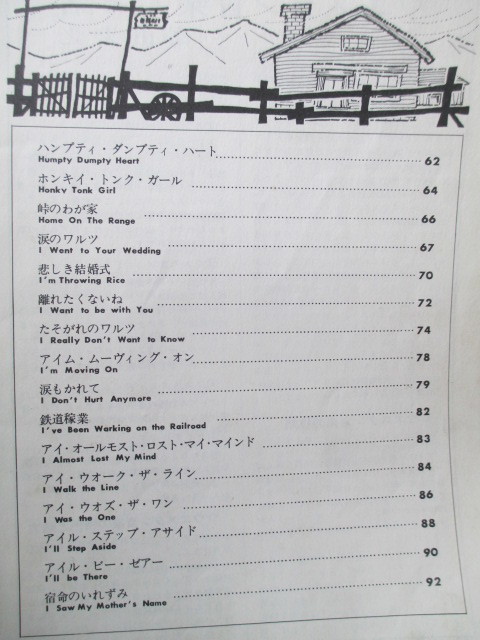 ハンプティ・ダンプティ・ハート
Humpty Dumpty Heart 62
ホンキイ・トンク・ガール
Honky Tonk Girl 64
峠のわが家
Home On The Range 66
涙のワルツ
I Went to Your Wedding 67
悲しき結婚式
I'm Throwing Rice 70
離れたくないね
I Want to be with You 72
たそがれのワルツ
I Really Don't Want to Know 74
アイム・ムーヴィング・オン
I'm Moving On 78
涙もかれて
I Don't Hurt Anymore 79
鉄道稼業
I've Been Warking on the Railroad 82
アイ・オールモスト・ロスト・マイ・マインド
I Almost Lost My Mind 83
アイ・ウオーク・ザ・ライン
I Walk the Line 84
アイ・ウオズ・ザ・ワン
I Was the One 86
アイル・ステップ・アサイド
I'll Step Aside 88
アイル・ビー・ゼアー
I'll be There 90
宿命のいれずみ
I Saw My Mother's Name 92